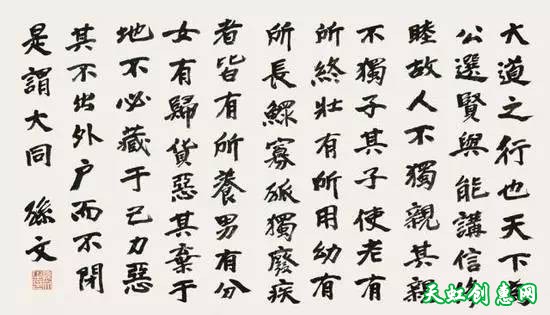 大道之行也天下為
公選賢與能講信修
睦故人不獨親其親
不獨子其子使老有
所終壯有所用幼有
所長鰥寡孤獨廢疾
者皆有所養男有分
女有歸貨惡其棄于
地不必藏于己力惡
其不出外戶而不閉
是謂大同 孫文
天虹创意网